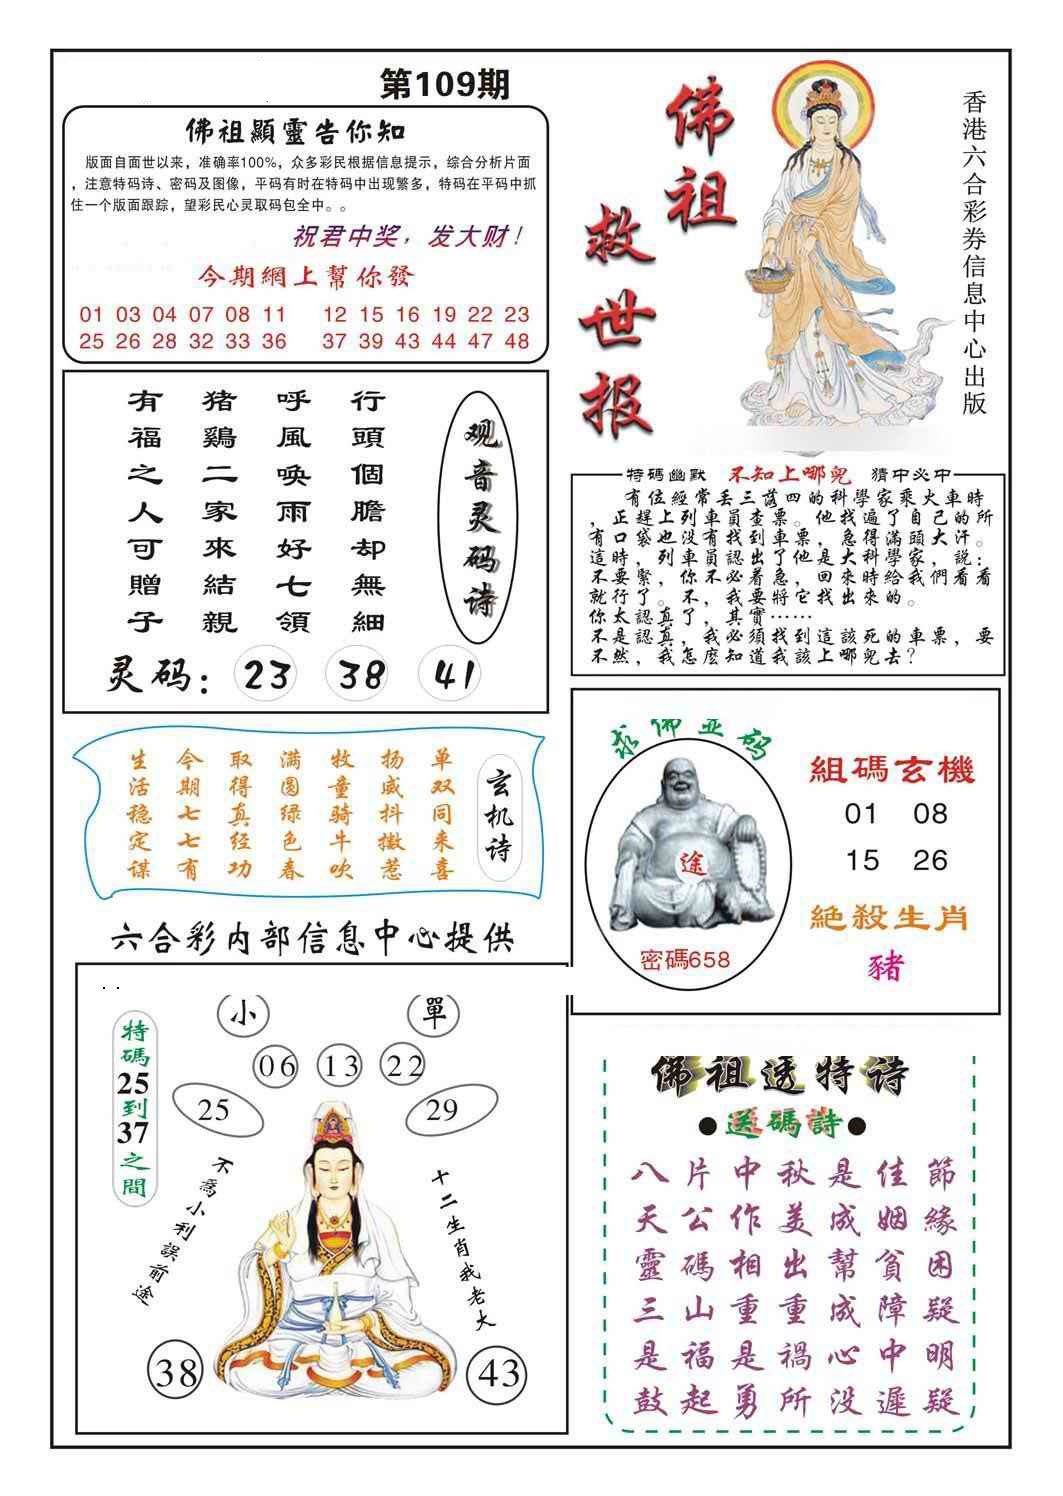 第109期
佛祖顯靈告你知
版面自面世以来，准确率100%，众多彩民根据信息提示，综合分析片面
，注意特码诗、密码及图像，平码有时在特码中出现繁多，特码在平码中抓
住一个版面跟踪，望彩民心灵取码包全中。。
祝君中奖，发大财！
今期網上幫你發
01 03 04 07 08 11 12 15 16 19 22 23
25 26 28 32 33 36 37 39 43 44 47 48
佛祖
救世报
香港六合彩券信息中心出版
观音灵码诗
行頭個膽却無細
呼風喚雨好七領
猪鷄二家來結親
有福之人可贈子
灵码：23 38 41
特碼幽默 不知上哪兒 猜中必中
有位經常丢三落四的科學家乘火車時
，正趕上列車員查票。他找遍了自己的所
有口袋也没有找到車票，急得滿頭大汗。
這時，列車員認出了他是大科學家，説：
不要緊，你不必着急，回來時給我們看看
就行了。不，我要將它找出來的。
你太認真了，其實……
不是認真，我必須找到這該死的車票，要
不然，我怎麽知道我該上哪兒去？
玄机诗
单双同来喜
扬威抖擞惹
牧童骑牛吹
满圆绿色春
取得真经功
今期七七有
生活稳定谋
求佛显码
途
密碼658
組碼玄機
01 08
15 26
絕殺生肖
豬
六合彩内部信息中心提供
小 單
06 13 22
25 29
特碼25到37之間
不爲小利誤前途
十二生肖我老大
38 43
佛祖透特诗
●送碼詩●
八片中秋是佳節
天公作美成姻緣
靈碼相出幫貧困
三山重重成障疑
是福是禍心中明
鼓起勇所没遲疑